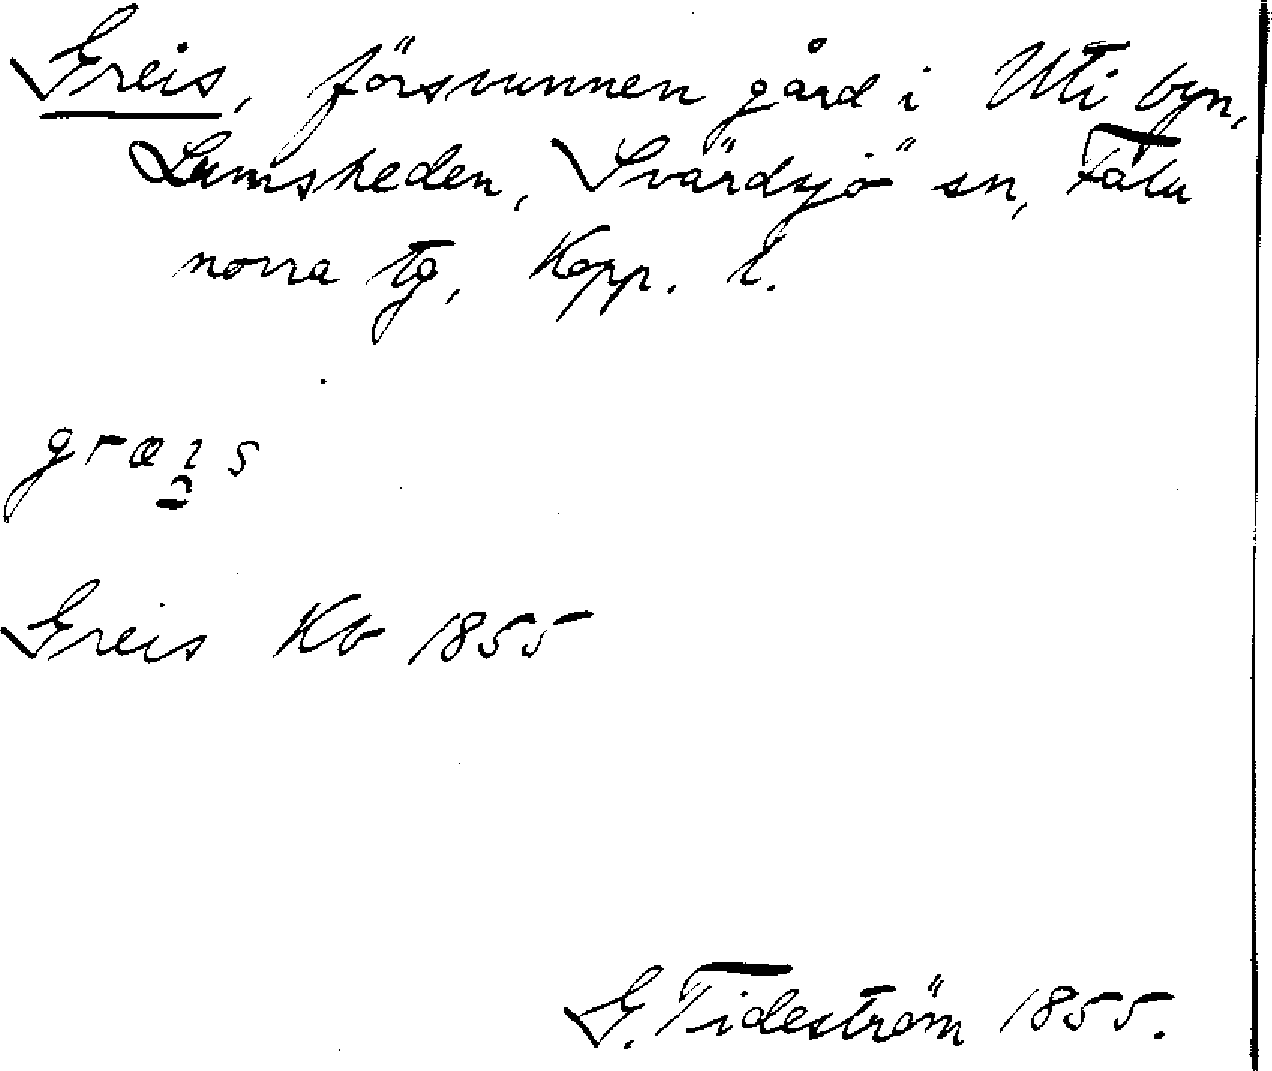 Greis, försvunnen gård i Uti byn,
Lumsheden, Svärdsjö sn, Falu
norra tg, Kopp. l.
græı̯s
Greis Kb 1855
G. Tideström 1855.